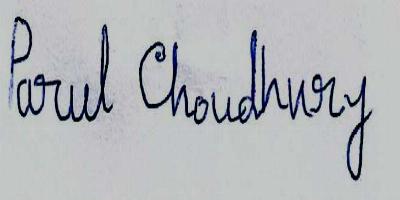 Parul Choudhury